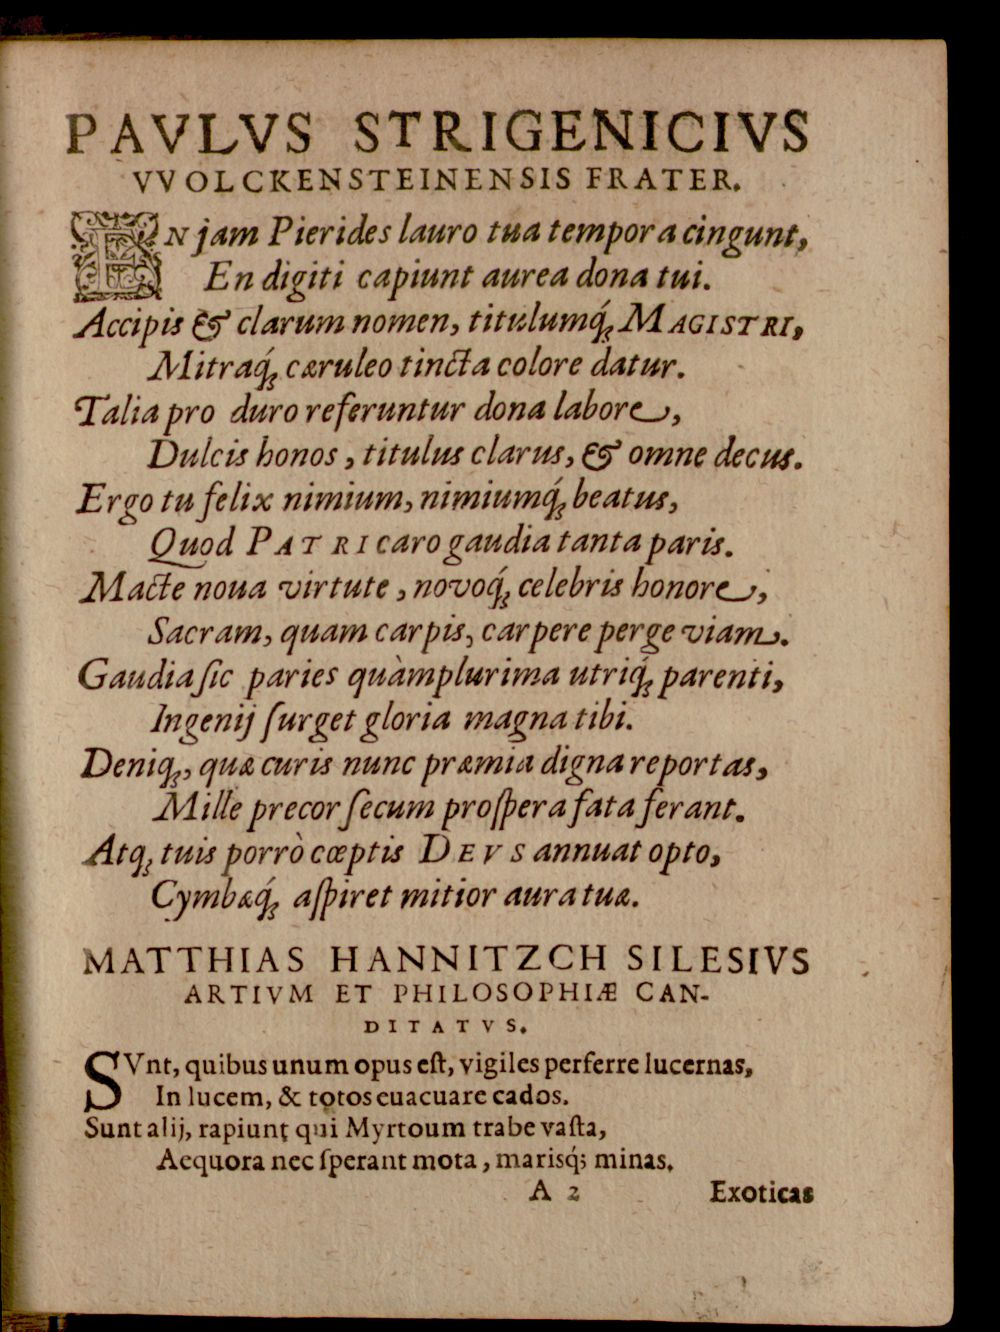 PAVLVS STRIGENICIVS
VVOLCKENSTEINENSIS FRATER.
EN jam Pierides lauro tua tempora cingunt,
En digiti capiunt aurea dona tui.
Accipis & clarum nomen, titulumq́ꝫ MAGISTRI,
Mitraq́ꝫ cæruleo tincta colore datur.
Talia pro duro referuntur dona labore,
Dulcis honos, titulus clarus, & omne decus.
Ergo tu felix nimium, nimiumq́ꝫ beatus,
Quod PATRI caro gaudia tanta paris.
Macte noua virtute, novoq́ꝫ celebris honore,
Sacram, quam carpis, carpere perge viam.
Gaudia ſic paries quàmplurima utriq́ꝫ parenti,
Ingenij ſurget gloria magna tibi.
Deniqꝫ, quæ curis nunc præmia digna reportas,
Mille precor ſecum proſpera fata ferant.
Atqꝫ tuis porrò cœptis DEVS annuat opto,
Cymbæq́ꝫ aſpiret mitior aura tuæ.
MATTHIAS HANNITZCH SILESIVS
ARTIVM ET PHILOSOPHIÆ CAN-
DITATVS.
SVnt, quibus unum opus eſt, vigiles perferre lucernas,
In lucem, & totos euacuare cados.
Sunt alij, rapiunt qui Myrtoum trabe vaſta,
Aequora nec ſperant mota, marisq́; minas.
A 2 Exoticas